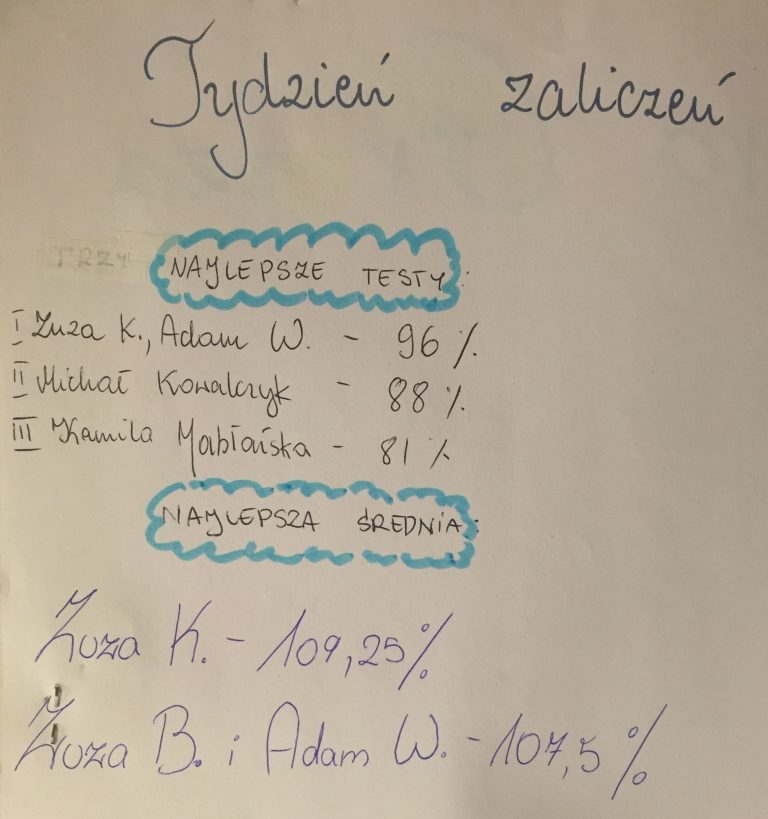 Tydzień zaliczeń
TRZY NAJLEPSZE TESTY:
I Zuza K., Adam W. - 96 %
II Michał Kowalczyk - 88 %
III Kamila Mabłańska - 81 %
NAJLEPSZA ŚREDNIA:
Zuza K. - 109,25%
Zuza B. i Adam W. - 107,5 %